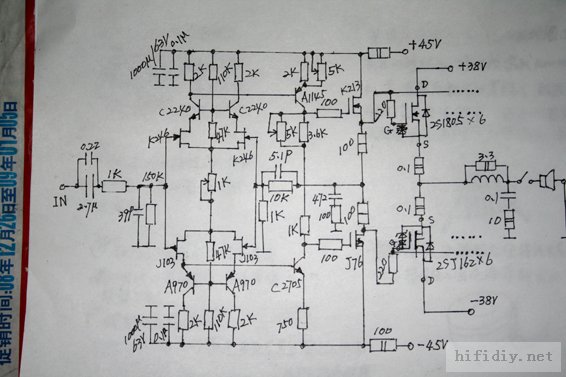 促销时间:08年12月26日至09年01月05日
+45V
+38V
1000μ/63V
0.1μ
2K
10K
2K
2K
5K
A1145
K213
100
D
C2240
C2240
220
G
2SJ1805×6
5K
3.6K
S
K246
47K
K246
100
0.22
1K
150K
5.1P
0.1
3.3
IN
2.7μ
1K
10K
472
39P
1K
100
100
0.1
0.1
10
1K
S
J103
47K
J103
100
J76
220
2SJ162×6
A970
A970
C2705
D
1000μ
63V
0.1μ
2K
110K
2K
750
-38V
100
-45V
hifidiy.net